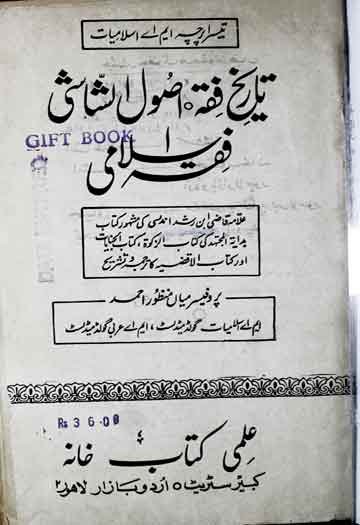 تیسرا پرچہ ایم اے اسلامیات
تاریخ فقہ ہ اصول الشاشی
GIFT BOOK
فقہ اسلامی
علامہ قاضی ابن رشد اندلسی کی مشہور کتاب
بدایۃ المجتہد کی کتاب الزکوٰۃ، کتاب الجنایات
اور کتاب الاقضیہ کا ترجمہ و تشریح
پروفیسر میاں منظور احمد
ایم اے اسلامیات گولڈ میڈلسٹ، ایم اے عربی گولڈ میڈلسٹ
Rs 36.00
علمی کتاب خانہ
کبیر سٹریٹ ہ اردو بازار لاہور ۲